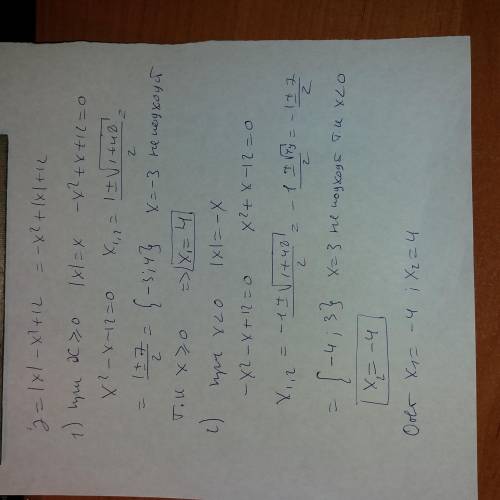 y = |x| - x² + 12 = -x² + |x| + 12
1) при x ≥ 0 |x| = x -x² + x + 12 = 0
x² - x - 12 = 0 x₁,₂ = (1 ± √(1+48))/2 =
= (1 ± 7)/2 = {-3; 4} x = -3 не подходит
т.и x ≥ 0 => |x₁ = 4|
2) при x < 0 |x| = -x
-x² - x + 12 = 0 x² + x - 12 = 0
x₁,₂ = (-1 ± √(1+48))/2 = (-1 ± √49)/2 = (-1 ± 7)/2
= {-4; 3} x = 3 не подходит т.и x < 0
|x₂ = -4|
Ответ x₁ = -4; x₂ = 4